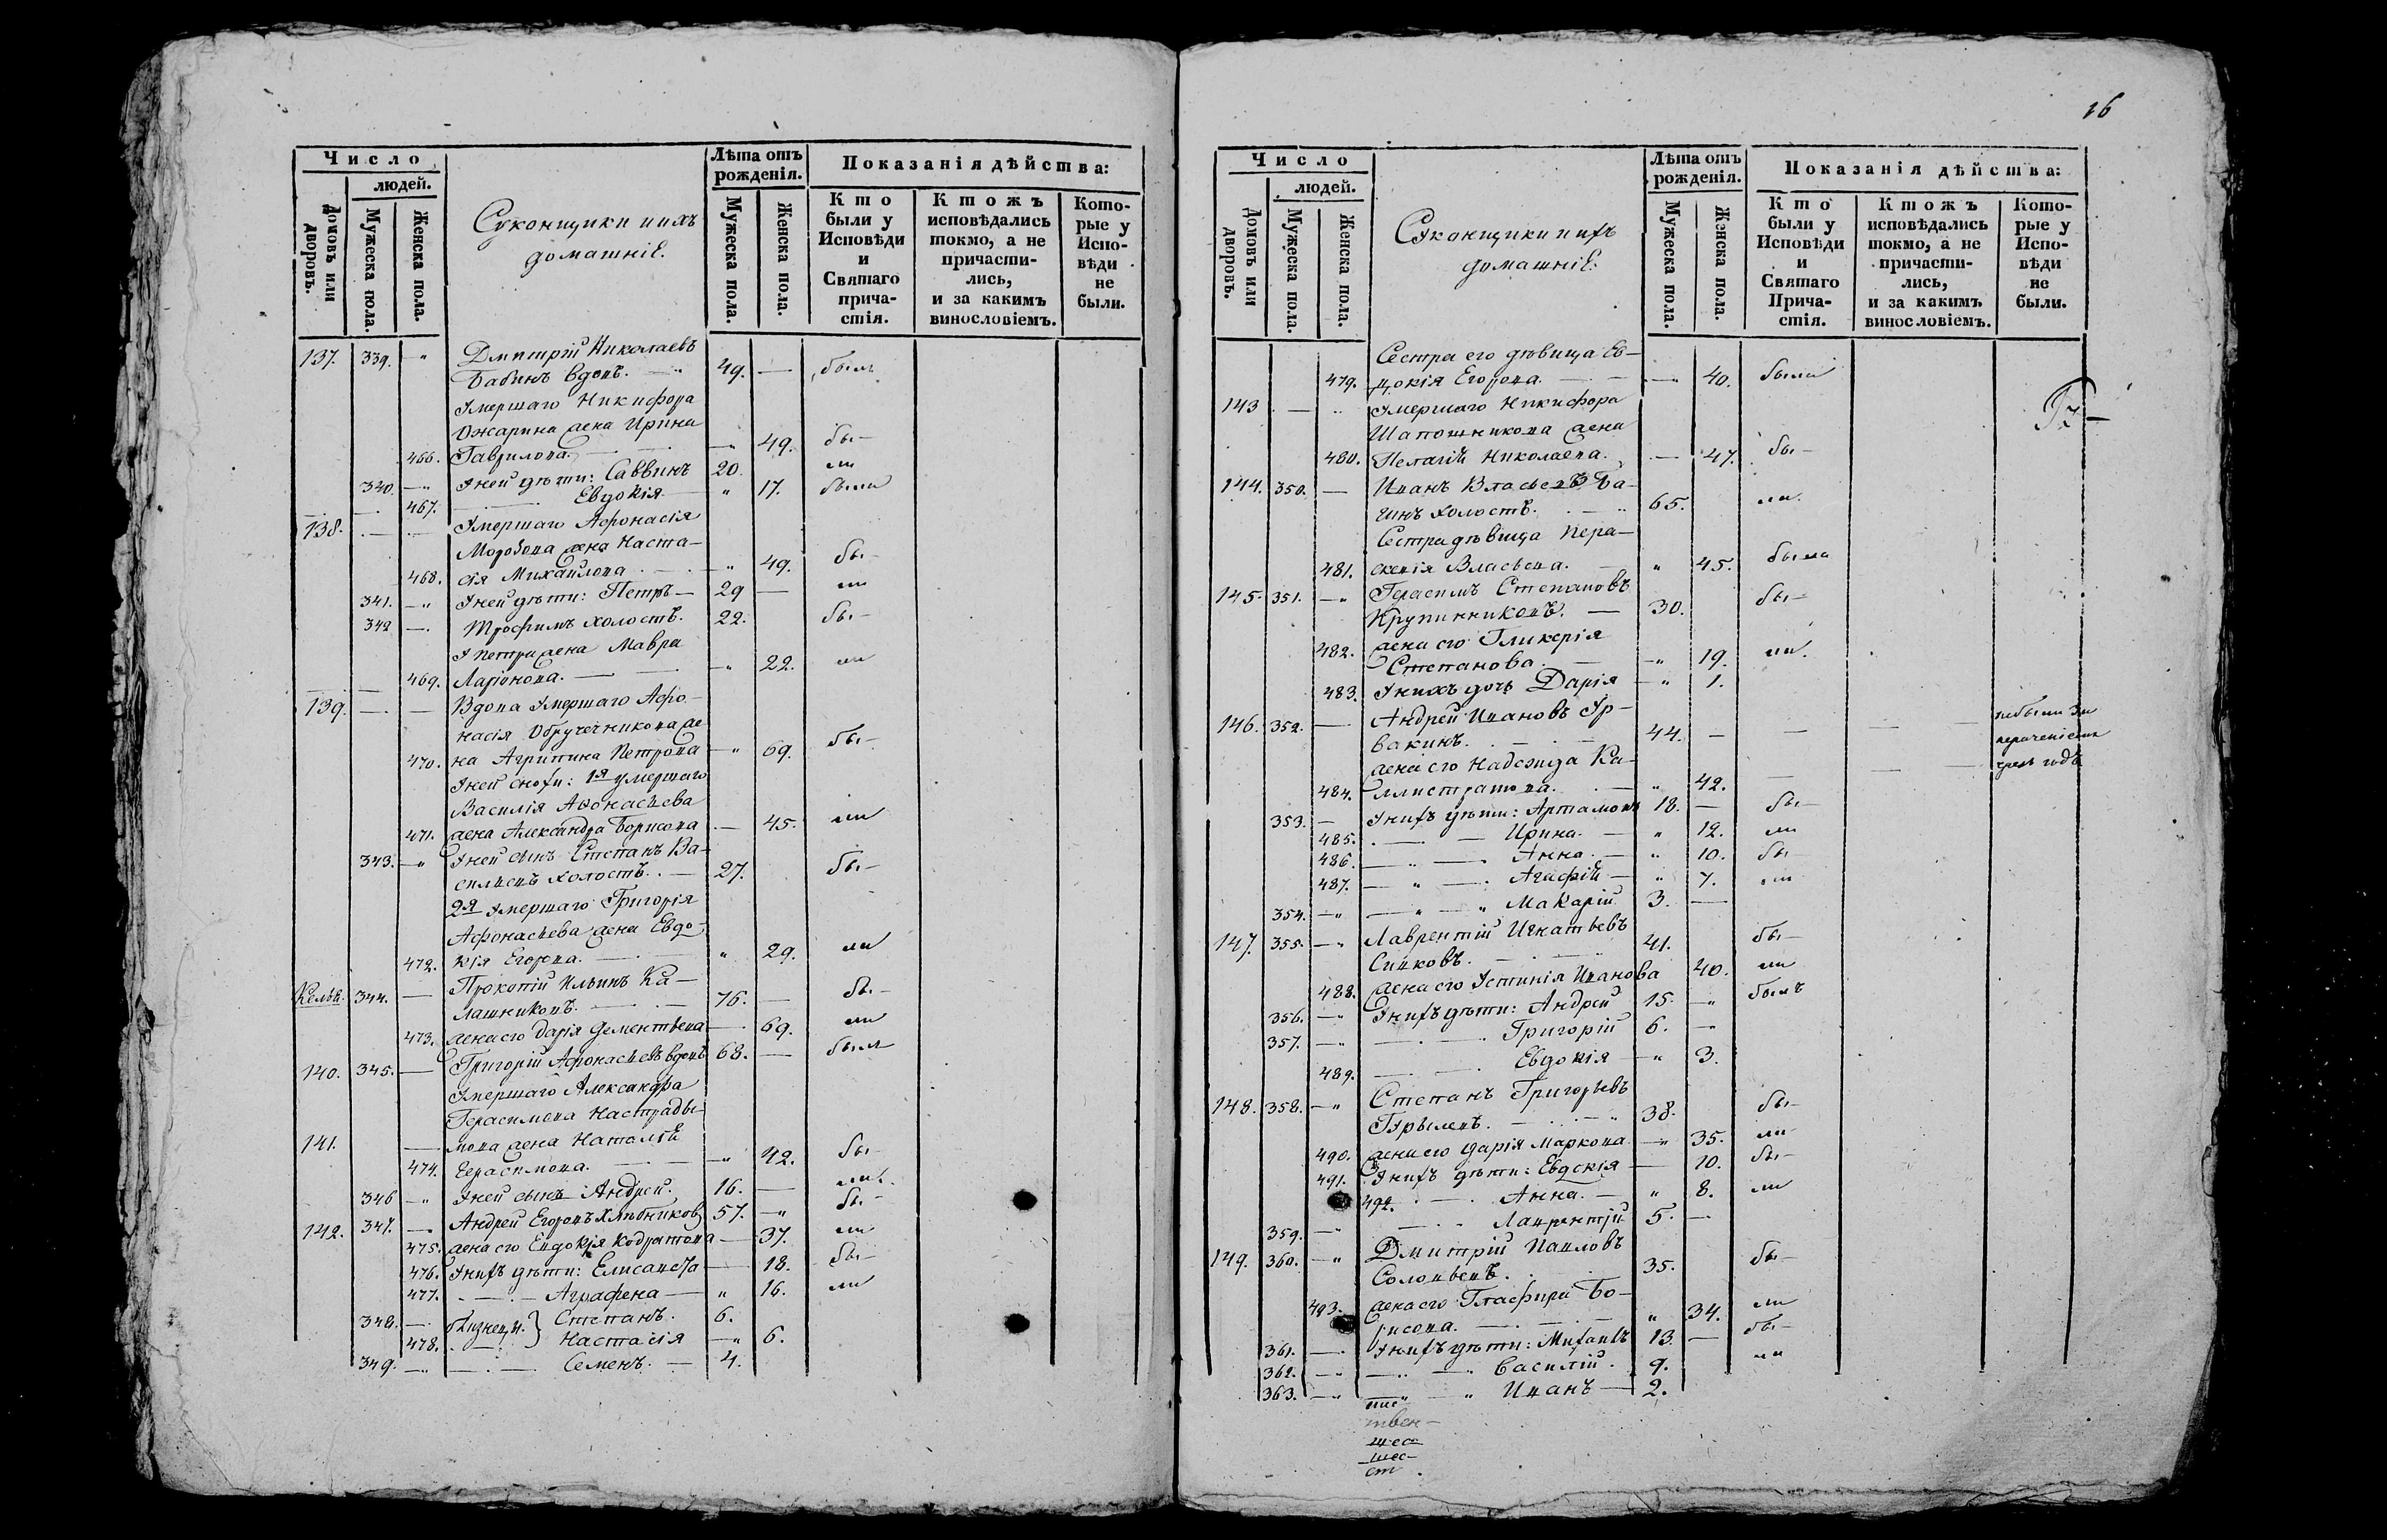 Число
людей.
Домовъ или дворовъ.
Мужеска пола.
Женска пола.
Суконщики и ихъ
домашніе.
Лѣта отъ
рожденія.
Мужеска пола.
Женска пола.
Показанія дѣйства:
Кто
были у
Исповѣди
и
Святаго
прича-
стія.
Ктожъ
исповѣдались
токмо, а не
причасти-
лись,
и за какимъ
винословіемъ.
Кото-
рые у
Испо-
вѣди
не
были.
137. 339. Дмитрій Николаевъ
Бабинъ вдовъ. 49. былъ
Умершаго Никифора
Ожарина жена Ирина
466. Гаврилова. 49. бы-
340. У ней дѣти: Саввинъ 20. ли
467. Евдокія 17. была
138. Умершаго Афонасія
Морозова жена Наста-
468. сія Михайлова 49. бы-
341. У ней дѣти: Петръ 29 ли
342 Трофимъ холостъ. 22. бы-
У Петра жена Мавра
469. Ларіонова. 22. ли
139. Вдова Умершаго Афо-
насія Обручечникова же-
470. на Агрипина Петрова 69. бы-
У ней снохи: 1я умершаго
Василія Афонасьева
471. жена Александра Борисова 45. ли
343. У ней сынъ Степанъ Ва-
сильевъ холостъ. 27. бы-
2я Умершаго Григорія
Афонасьева жена Евдо-
472. кія Егорова. 29. ли
Кельи. 344. Прокопій Ильинъ Ка-
лашниковъ. 76. бы-
473. жена его Дарія Дементьева 69. ли
140. 345. Григорій Афонасьевъ вдовъ 68. былъ
Умершаго Александра
Герасимова
141. жена Наталіѣ
474. Герасимова. 42. бы-
346 У ней сынъ Андрей. 16. ли.
142. 347. Андрей Егоровъ Хлѣбниковъ 57. бы-
475. жена его Евдокія Кодратова 37. ли
476. У нихъ дѣти: Елисавета 18. бы-
477. Аграфена 16. ли
348. близнецы. } Степанъ. 6.
478. Настасія 6.
349. Семенъ. 4.
16
Число
людей.
Домовъ или дворовъ.
Мужеска пола.
Женска пола.
Суконщики и ихъ
домашніе.
Лѣта отъ
рожденія.
Мужеска пола.
Женска пола.
Показанія дѣйства:
Кто
были у
Исповѣди
и
Святаго
Прича-
стія.
Ктожъ
исповѣдались
токмо, а не
причасти-
лись,
и за какимъ
винословіемъ.
Кото-
рые у
Испо-
вѣди
не
были.
Сестра его дѣвица Ев-
479. докія Егорова. 40. была
143 Умершаго Никифора
Шапошникова жена
480. Пелагіѣ Николаева. 47. бы-
144. 350. Иванъ Власьевъ Ба-
гинъ холостъ. 65. ли.
Сестра дѣвица Пера-
481. скевія Власьева. 45. была
145. 351. Герасимъ Степановъ
Крупинниковъ. 30. бы-
482. жена его Гликерія
Степанова. 19. ли.
483. У нихъ дочь Дарія 1.
146. 352. Андрей Ивановъ Ур-
вакинъ. 44. небыли за
жена его Надежда Ка-
484. листратова. 42.
353. У нихъ дѣти: Артамонъ 18. бы-
485. Ирина. 12. ли
486. Анна. 10. бы
487. Агафій 7. ли
354. Макарій 3.
147. 355. Лаврентій Игнатьевъ
Сивковъ. 41. бы-
488. жена его Устинія Иванова 40. ли
356. У нихъ дѣти: Андрей 15. былъ
357. Григорій 6.
489. Евдокія 3.
148. 358. Степанъ Григорьевъ
Гурылевъ. 38. бы-
490. жена его Дарія Маркова 35. ли
491. У нихъ дѣти: Евдокія 10. бы-
492. Анна. 8. ли
359. Лаврентій 5.
149. 360. Дмитрій Павловъ
Соловьевъ. 35. бы-
493. жена его Гласфира Бо-
рисова. 34. ли
361. У нихъ дѣти: Михаилъ 13. бы-
362. Василій. 9. ли
363. Иванъ 2.